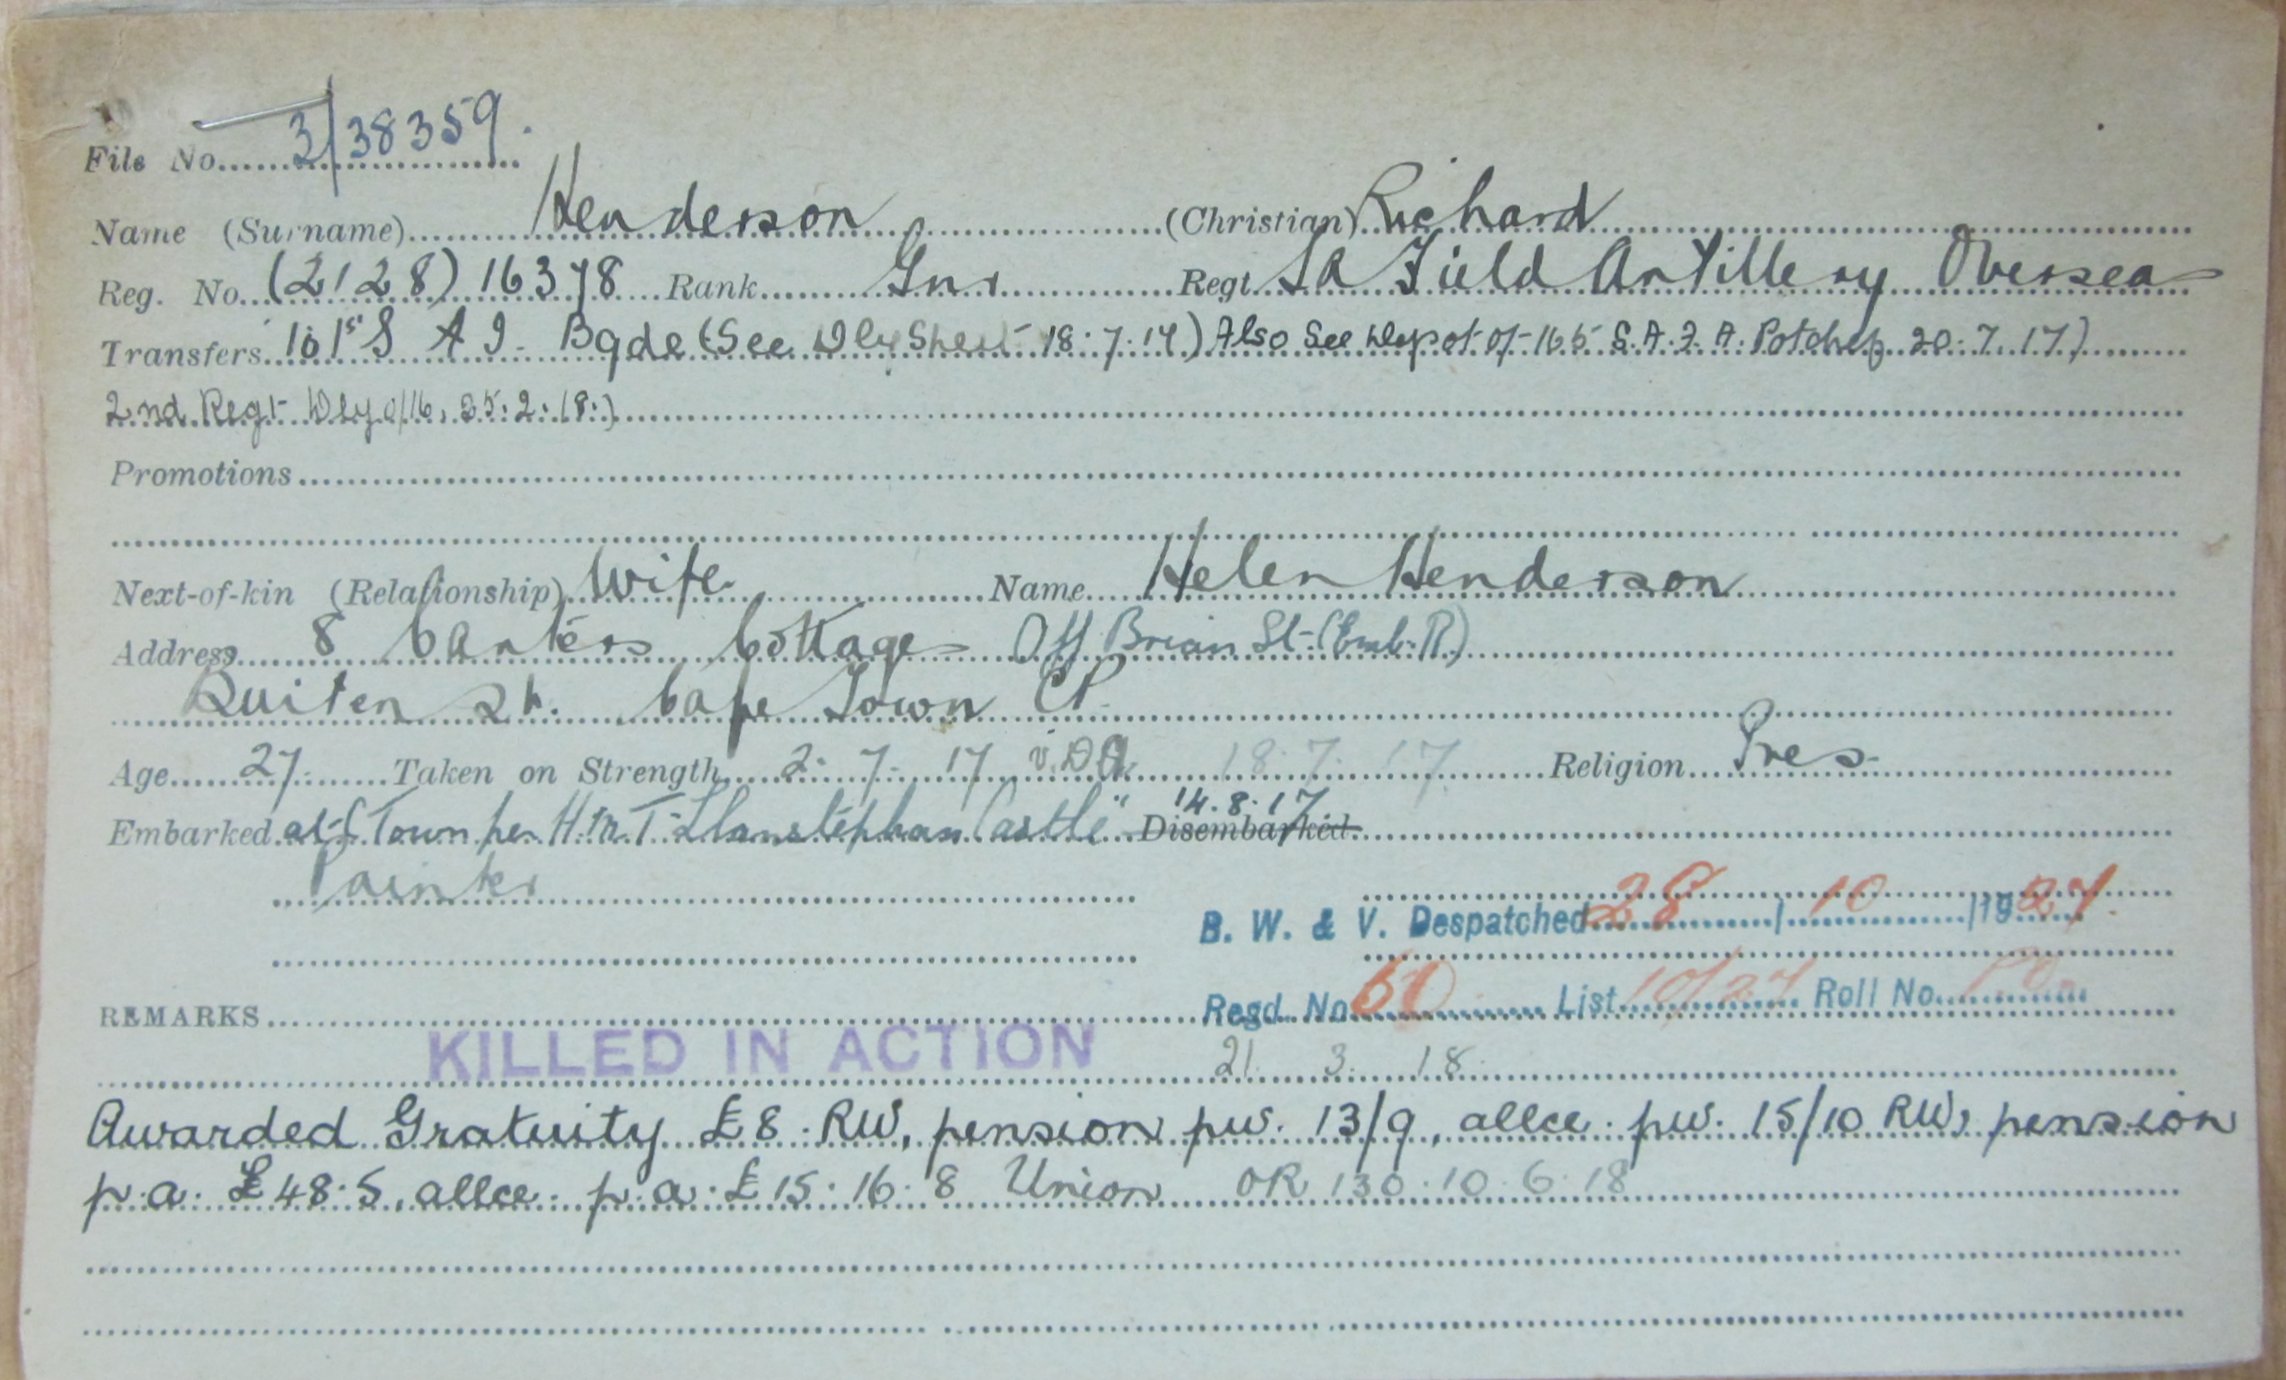 File No. 3/38359.
Name (Surname) Henderson (Christian) Richard
Reg. No. (2128) 16378 Rank Gnr Regt SA Field Artillery Oversea
Transfers to 1st S A I. Bgde (See Dly Sheet 18.7.17) Also See Depot of 165 S.A.F.A. Potchef 20.7.17)
2nd Regt Dly o/116, 25.2.18.)
Promotions
Next-of-kin (Relationship) Wife. Name Helen Henderson
Address 8 Cottage Off Brian St (Emb. R)
St. Cape Town CP.
Age 27. Taken on Strength 2. 7. 17 18.7.17. Religion Pres
Embarked at C Town per H.M.T. "Llanstephan Castle" Disembarked 14.8.17
Painter
B. W. & V. Despatched 28 / 10 / 1927.
Regd. No. List 10/27 Roll No.
REMARKS
KILLED IN ACTION 21. 3. 18.
Awarded Gratuity £8. RW, pension pw. 13/9, allce. pw. 15/10 RW, pension
p.a. £48.5, allce. p.a. £15.16.8 Union OR 130.10.6.18